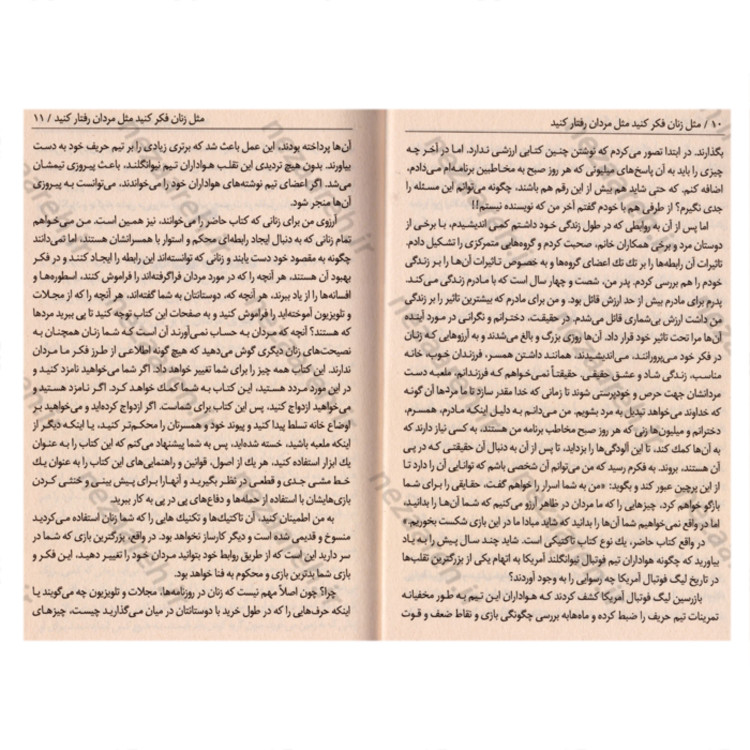 ۱۰ / مثل زنان فکر کنید مثل مردان رفتار کنید
بگذارند. در ابتدا تصور می‌کردم که نوشتن چنین کتابی ارزشی ندارد. اما در آخر چه
چیزی را باید به آن پاسخ‌های میلیونی که هر روز صبح به مخاطبین برنامه‌ام می‌دادم،
اضافه کنم. که حتی شاید هم بیش از این رقم هم باشند، چگونه می‌توانم این مسئله را
جدی نگیرم؟ از طرفی هم با خودم گفتم آخر من که نویسنده نیستم!!
اما پس از آن به روابطی که در طول زندگی خود داشتم کمی اندیشیدم، با برخی از
دوستان مرد و برخی همکاران خانم، صحبت کردم و گروه‌هایی متمرکزی را تشکیل دادم.
تاثیرات آن رابطه‌ها را بر تك تك اعضای گروه‌ها و به خصوص تاثیرات آن‌ها را بر زندگی
خودم را هم بررسی کردم. پدر من، شصت و چهار سال است که با مادرم زندگی می‌کند.
پدرم برای مادرم بیش از حد ارزش قائل بود. و من برای مادرم که بیشترین تاثیر را بر زندگی
من داشت ارزش بی‌شماری قائل می‌شدم. در حقیقت، دخترانم و نگرانی در مورد آینده
آن‌ها مرا تحت تاثیر خود قرار داد. آن‌ها روزی بزرگ و بالغ می‌شدند و به آرزوهایی که زنان
در فکر خود می‌پرورانند، می‌اندیشیدند، همانند داشتن همسر، فرزندان خوب، خانه
مناسب، زندگی شاد و عشق حقیقی. حقیقتاً نمی‌خواهم که فرزندانم، ملعبه دست
مردانشان جهت حرص و خودپرستی شوند تا زمانی که خدا مقدر سازد تا ما مردها آن گونه
که خداوند می‌خواهد تبدیل به مرد بشویم. من می‌دانم به دلیل اینکه مادرم، همسرم،
دخترانم و میلیون‌ها زنی که هر روز صبح مخاطب برنامه من هستند، به کسی نیاز دارند که
به آن‌ها کمك کند، تا این آلودگی‌ها را بزداید، تا پس از آن به دنبال آن حقیقتی که در پی
آن هستند، بروند. به فکرم رسید که من می‌توانم آن شخصی باشم که توانایی آن را دارد تا
از این پرچین عبور کند و بگوید: «من به شما اسرار را خواهم گفت، حقایقی را برای شما
بازگو خواهم کرد، چیزهایی را که ما مردان در ظاهر آرزو می‌کنیم که شما آن‌ها را بدانید،
اما در واقع نمی‌خواهیم شما آن‌ها را بدانید که شاید مبادا ما در این بازی شکست بخوریم.»
در واقع کتاب حاضر، یك نوع کتاب تاکتیکی است. شاید چند سال پیش را به یاد
بیاورید که چگونه هواداران تیم فوتبال نیوانگلند آمریکا به اتهام یکی از بزرگترین تقلب‌ها
در تاریخ لیگ فوتبال آمریکا چه رسوایی را به وجود آوردند؟
بازرسین لیگ فوتبال آمریکا کشف کردند که هواداران این تیم به طور مخفیانه
تمرینات تیم حریف را ضبط کرده و ماه‌هابه بررسی چگونگی بازی و نقاط ضعف و قوت
مثل زنان فکر کنید مثل مردان رفتار کنید / ۱۱
آن‌ها پرداخته بودند، این عمل باعث شد که برتری زیادی را بر تیم حریف خود به دست
بیاورند. بدون هیچ تردیدی این تقلب هواداران تیم نیوانگلند، باعث پیروزی تیمشان
می‌شد. اگر اعضای تیم نوشته‌های هواداران خود را می‌خواندند، می‌توانست به پیروزی
آن‌ها منجر شود.
آرزوی من برای زنانی که کتاب حاضر را می‌خوانند، نیز همین است. من می‌خواهم
تمام زنانی که به دنبال ایجاد رابطه‌ای محکم و استوار با همسرانشان هستند، اما نمی‌دانند
چگونه به مقصود خود دست یابند و زنانی که توانسته‌اند این رابطه را ایجاد کنند و در فکر
بهبود آن هستند، هر آنچه را که در مورد مردان فراگرفته‌اند را فراموش کنند، اسطوره‌ها و
افسانه‌ها را از یاد ببرند، هر آنچه که، دوستانتان به شما گفته‌اند، هر آنچه را که از مجلات
و تلویزیون آموخته‌اید را فراموش کنید و به صفحات این کتاب توجه کنید تا پی ببرید مردها
که هستند؟ آنچه که مردان به حساب نمی‌آورند آن است که شما زنان همچنان به
نصیحت‌های زنان دیگری گوش می‌دهید که هیچ گونه اطلاعی از طرز فکر ما مردان
ندارند. این کتاب همه چیز را برای شما تغییر خواهد داد. اگر شما می‌خواهید نامزد کنید و
در این مورد مردد هستید، این کتاب به شما کمك خواهد کرد. اگر نامزد هستید و
می‌خواهید ازدواج کنید، پس این کتاب برای شماست. اگر ازدواج کرده‌اید و می‌خواهید بر
اوضاع خانه تسلط پیدا کنید و پیوند خود و همسرتان را محکم‌تر کنید، یا اینکه دیگر از
اینکه ملعبه باشید، خسته شده‌اید، پس به شما پیشنهاد می‌کنم که این کتاب را به عنوان
یك ابزار استفاده کنید، هر یك از اصول، قوانین و راهنمایی‌های این کتاب را به عنوان یك
خط مشی جدی و قطعی در نظر بگیرید و آنهارا برای پیش بینی و خنثی کردن
بازی‌هایشان با استفاده از حمله‌ها و دفاع‌های پی در پی به کار ببرید.
به من اطمینان کنید، آن تاکتیك‌ها و تکنیك هایی را که شما زنان استفاده می‌کردید
منسوخ و قدیمی شده است و دیگر کارساز نخواهد بود. در واقع، بزرگترین بازی که شما در
سر دارید این است که از طریق روابط خود بتوانید مردان خود را تغییر دهید، این فکر و
بازی شما بدترین بازی و محکوم به فنا خواهد بود.
چرا؟ چون اصلاً مهم نیست که زنان در روزنامه‌ها، مجلات و تلویزیون چه می‌گویند یا
اینکه حرف‌هایی را که در طول خرید با دوستانتان در میان می‌گذارید چیست، چیزهای